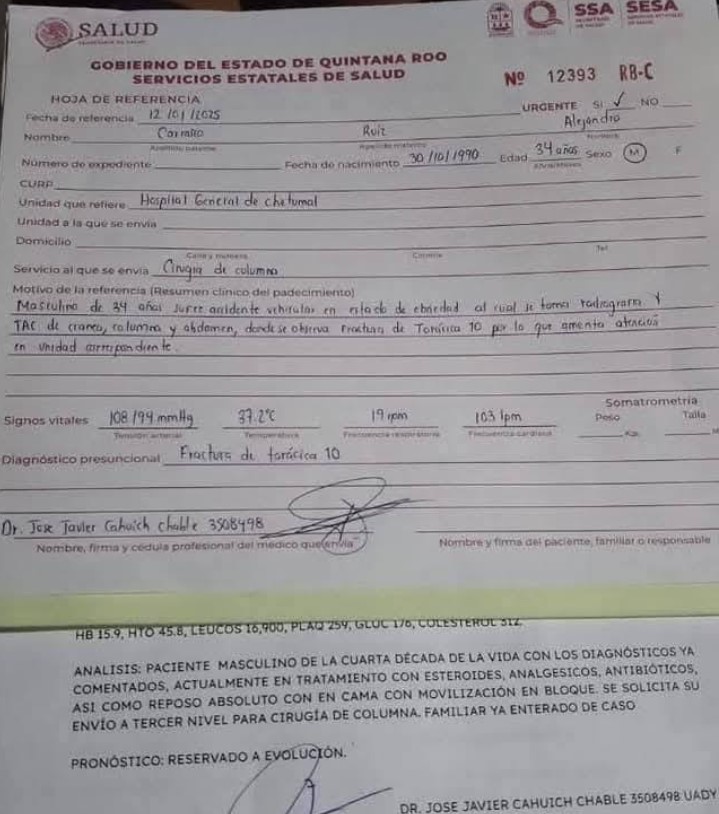 SALUD
SECRETARÍA DE SALUD
SSA
SESA
GOBIERNO DEL ESTADO DE QUINTANA ROO
SERVICIOS ESTATALES DE SALUD
Nº 12393 RB-C
HOJA DE REFERENCIA
URGENTE SI ✓ NO
Fecha de referencia 12/01/2025
Nombre Ruiz Alejandro
Apellido paterno Apellido materno Nombre
Número de expediente Fecha de nacimiento 30/10/1990 Edad 34 años Sexo M F
CURP
Unidad que refiere Hospital General de chetumal
Unidad a la que se envía
Domicilio
Calle y número Colonia Tel
Servicio al que se envía Cirugia de columna
Motivo de la referencia (Resumen clínico del padecimiento)
Masculino de 34 años sufre accidente vehicular en estado de ebriedad al cual se toma radiografía y
TAC de craneo, columna y abdomen, donde se observa fractura de Torácica 10 por lo que amerita atención
en unidad correspondiente.
Somatrometria
Signos vitales 108/94 mmHg 37.2°C 19 rpm 103 lpm Peso Talla
Tensión arterial Temperatura Frecuencia respiratoria Frecuencia cardiaca Kg.
Diagnóstico presuncional Fractura de torácica 10
Dr. Jose Javier Cahuich chable 3508498
Nombre, firma y cédula profesional del médico que envía Nombre y firma del paciente, familiar o responsable
HB 15.9, HTO 45.8, LEUCOS 16,900, PLAQ 259, GLUC 176, COLESTEROL 312.
ANALISIS: PACIENTE MASCULINO DE LA CUARTA DÉCADA DE LA VIDA CON LOS DIAGNÓSTICOS YA
COMENTADOS, ACTUALMENTE EN TRATAMIENTO CON ESTEROIDES, ANALGESICOS, ANTIBIÓTICOS,
ASI COMO REPOSO ABSOLUTO CON EN CAMA CON MOVILIZACIÓN EN BLOQUE. SE SOLICITA SU
ENVÍO A TERCER NIVEL PARA CIRUGÍA DE COLUMNA. FAMILIAR YA ENTERADO DE CASO
PRONÓSTICO: RESERVADO A EVOLUCIÓN.
DR. JOSE JAVIER CAHUICH CHABLE 3508498 UADY